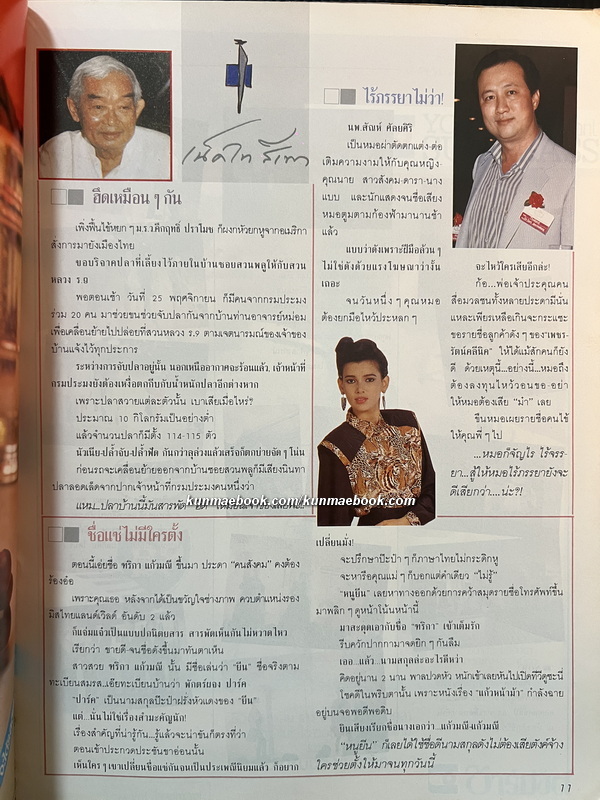 เน็คไท สีเทา
ฮึดเหมือน ๆ กัน
เพิ่งฟื้นไข้หยก ๆ ม.ร.ว.คึกฤทธิ์ ปราโมช ก็ผงกหัวยกหูจากอเมริกา
สั่งการมายังเมืองไทย
ขอบริจาคปลาที่เลี้ยงไว้ภายในบ้านซอยสวนพลูให้กับสวน
หลวง ร.๙
พอตอนเช้า วันที่ 25 พฤศจิกายน ก็มีคนจากกรมประมง
ร่วม 20 คน มาช่วยขนช่วยจับปลากันจากบ้านท่านอาจารย์หม่อม
เพื่อเคลื่อนย้ายไปปล่อยที่สวนหลวง ร.9 ตามเจตนารมณ์ของเจ้าของ
บ้านแจ้งไว้ทุกประการ
ระหว่างการจับปลาอยู่นั้น นอกเหนืออากาศจะร้อนแล้ว เจ้าหน้าที่
กรมประมงยังต้องเหงื่อตกกีบกับน้ำหนักปลาอีกต่างหาก
เพราะปลาสวายแต่ละตัวนั้น เบาเสียเมื่อไหร่?
ประมาณ 10 กิโลกรัมเป็นอย่างต่ำ
แล้วจำนวนปลาก็มีตั้ง 114-115 ตัว
นัวเนีย-ปล้ำจับ-ปล้ำฟัด กันกว่าลุล่วงแล้วเสร็จก็ตกบ่ายจัด ๆ โน่น
ก่อนรถจะเคลื่อนย้ายออกจากบ้านซอยสวนพลูก็มีเสียงนินทา
ปลาลอดเล็ดจากปากเจ้าหน้าที่กรมประมงคนหนึ่งว่า
แหม...ปลาบ้านนี้มันสารพัด
kunmaebook.com/kunmaebook.com
ชื่อแซ่ไม่มีใครตั้ง
ตอนนี้เอ่ยชื่อ ทริกา แก้วมณี ขึ้นมา ประดา “คนสังคม” คงต้อง
ร้องอ๋อ
เพราะคุณเธอ หลังจากได้เป็นขวัญใจช่างภาพ ควบตำแหน่งรอง
มิสไทยแลนด์เวิลด์ อันดับ 2 แล้ว
ก็แอ่มแจ๋วเป็นแบบปกนิตยสาร สารพัดเห็นกันไม่หวาดไหว
เรียกว่า ขายดี-จนชื่อดังขึ้นมาทันตาเห็น
สาวสวย ทริกา แก้วมณี นั้น มีชื่อเล่นว่า “ยีน” ชื่อจริงตาม
ทะเบียนสมรส..เอ๊ยทะเบียนบ้านว่า พักตร์ยอง ปาร์ค
“ปาร์ค” เป็นนามสกุลป๊ะป๋าฝรั่งหัวแดงของ “ยีน”
แต่...นั่นไม่ใช่เรื่องสำมะคัญนัก!
เรื่องสำคัญที่น่ารู้กัน...รู้แล้วจะน่าขันก็ตรงที่ว่า
ตอนเข้าประกวดประชันขาอ่อนนั้น
เห็นใครๆ เขาเปลี่ยนชื่อแซ่กันจนเป็นประเพณีนิยมแล้ว ก็อยาก
ไร้ภรรยาไม่ว่า!
นพ.สัณห์ ศัลยศิริ
เป็นหมอผ่าตัดตกแต่ง-ต่อ
เติมความงามให้กับคุณหญิง
คุณนาย สาวสังคม-ดารา-นาง
แบบ และนักแสดงจนชื่อเสียง
หอมตูมตามก้องฟ้ามานานช้า
แล้ว
แบบว่าดังเพราะฝีมือล้วน ๆ
ไม่ใช่ดังด้วยแรงโฆษณาว่างั้น
เถอะ
จนวันหนึ่ง ๆ คุณหมอ
ต้องยกมือไหว้ประหลก ๆ
จะไหว้ใครเสียอีกล่ะ!
ก้อ...พ่อเจ้าประคุณคน
สื่อมวลชนทั้งหลายประดามีนั่น
แหละเพียรเหลือเกินจะกระแซะ
ขอรายชื่อลูกค้าดัง ๆ ของ“เพชร-
รัตน์คลีนิค” ให้ได้แม้สักคนก็ยัง
ดี ด้วยเหตุนี้...อย่างนี้...หมอถึง
ต้องลงทุนไหว้วอนขอ-อย่า
ให้หมอต้องเสีย “ม้า” เลย
ขืนหมอเผยรายชื่อคนไข้
ให้คุณพี่ ๆ ไป
...หมอก็จัญไร ไร้จรร-
ยา...สู้ให้หมอไร้ภรรยายังจะ
ดีเสียกว่า....น่ะ?!
เปลี่ยนมั่ง!
จะปรึกษาป๊ะป๋า ๆ ก็ภาษาไทยไม่กระดิกหู
จะหารือคุณแม่ ๆ ก็บอกแต่คำเดียว “ไม่รู้”
“หนูยีน” เลยหาทางออกด้วยการคว้าสมุดรายชื่อโทรศัพท์ขึ้น
มาพลิก ๆ ดูหน้าโน้นหน้านี้
มาสะดุดเอากับชื่อ “ทริกา” เข้าเต็มรัก
รีบควักปากกามาจดยิก ๆ กันลืม
เออ...แล้ว...นามสกุลล่ะอะไรดีหว่า
คิดอยู่นาน 2 นาน พาลปวดหัว หนักเข้าเลยหันไปเปิดทีวีดูซะนี่
โชคดีในพริบตานั้น เพราะหนังเรื่อง “แก้วหน้าม้า” กำลังฉาย
อยู่บนจอพอดีพอดิบ
ยินเสียงเรียกชื่อนางเอกว่า...แก้วมณี-แก้วมณี
“หนูยีน” ก็เลยได้ใช้ชื่อดีนามสกุลดังไม่ต้องเสียตังค์จ้าง
ใครช่วยตั้งให้มาจนทุกวันนี้
11